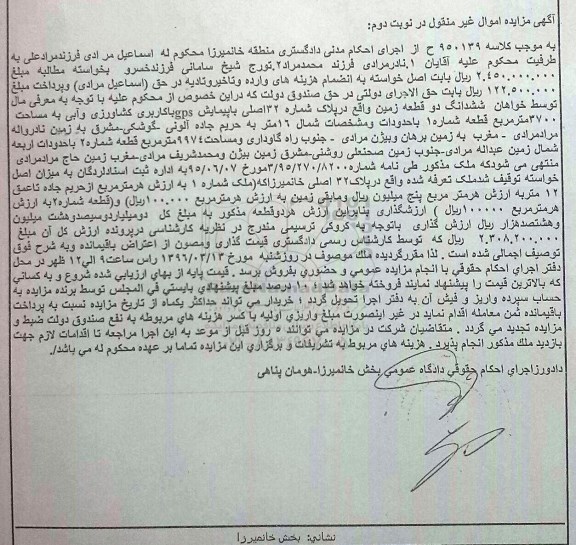 آگهی مزایده اموال غیر منقول در نوبت دوم:
به موجب کلاسه ۹۵۰۱۳۹ ح از اجرای احکام مدنی دادگستری منطقه خانمیرزا محکوم له اسماعیل مرادی فرزندمرادعلی به
طرفیت محکوم علیه آقایان ۱.نادرمرادی فرزند محمدمراد۲.تورج شیخ سامانی فرزندخسرو بخواسته مطالبه مبلغ
۲.۴۵۰.۰۰۰.۰۰۰ ریال بابت اصل خواسته به انضمام هزینه های وارده وتاخیروتادیه در حق (اسماعیل مرادی) وپرداخت مبلغ
۱۲۲.۵۰۰.۰۰۰ ریال بابت حق الاجرای دولتی در حق صندوق دولت که دراین خصوص از محکوم علیه با توجه به معرفی مال
توسط خواهان ششدانگ دو قطعه زمین واقع درپلاک شماره ۳۲اصلی باپیمایش gpsباکاربری کشاورزی وآبی به مساحت
۳۷۰۰مترمربع قطعه شماره۱ باحدودات ومشخصات شمال ۱۶متر به حریم جاده آلونی ـگوشکی-مشرق به زمین نادرواله
مرادمرادی - مغرب به زمین برهان وبیژن مرادی - جنوب راه گاوداری ومساحت۹۹۷۴مترمربع قطعه شماره۲ باحدودات اربعه
شمال زمین عبداله مرادی-جنوب زمین صحنعلی روشنی-مشرق زمین بیژن ومحمدشریف مرادی-مغرب زمین حاج مرادمرادی
منتهی می شودکه ملک مذکور طی نامه شماره۳/۹۵/۲۷۰/۸۲۰۰مورخ ۹۵/۰۶/۰۷به اداره ثبت اسنادلردگان به میزان اصل
خواسته توقیف شدملک تعرفه شده واقع درپلاک۳۲ اصلی خانمیرزاکه(ملک شماره ۱ به ارزش هرمترمربع ازحریم جاده تاعمق
۱۲ متربه ارزش هرمتر مربع پنج میلیون ریال ومابقی زمین به ارزش هرمترمربع ۱۰۰.۰۰۰ریال) و(قطعه شماره۲به ارزش
هرمترمربع ۱۰۰۰۰۰ریال ) ارزشگذاری بنابراین ارزش هردوقطعه مذکور به مبلغ کل دومیلیاردوسیصدوهشت میلیون
وهشتصدهزار ریال ارزش گذاری باتوجه به کروکی ترسیمی مندرج در نظریه کارشناسی درپرونده ارزش کل آن مبلغ
۲.۳۰۸.۲۰۰.۰۰۰ ریال که توسط کارشناس رسمی دادگستری قیمت گذاری ومصون از اعتراض باقیمانده وبه شرح فوق
توصیف اجمالی شده است . لذا مقررگردیده ملک موصوف در روزشنبه مورخ ۱۳۹۶/۰۳/۱۳ راس ساعت۹ الی۱۲ ظهر در محل
دفتر اجرای احکام حقوقی با انجام مزایده عمومی و حضوري بفروش برسد . قیمت پایه از بهای ارزیابی شده شروع و به کسانی
که بالاترین قیمت را پیشنهاد نمایند فروخته خواهد شد . ۱۰درصد مبلغ پیشنهادي بایستی في المجلس توسط برنده مزایده به
حساب سپرده واریز و فیش آن به دفتر اجرا تحویل گردد . خریدار می تواند حداکثر یکماه از تاریخ مزایده نسبت به پرداخت
باقیمانده ثمن معامله اقدام نماید در غیر اینصورت مبلغ واریزي اولیه با کسر هزینه هاي مربوطه به نفع صندوق دولت ضبط و
مزایده تجدید مي گردد . متقاضیان شرکت در مزایده می توانند ۵ روز قبل از موعد به این اجرا مراجعه تا اقدامات لازم جهت
بازدید ملک مذکور انجام پذیرد . هزینه هاي مربوط به تشریفات و برگزاري این مزایده تماما بر عهده محکوم له مي باشد./
دادورزاجراي احکام حقوقي دادگاه عمومي بخش خانمیرزا-هومان پناهی
نشانی: بخش خانمیرزا